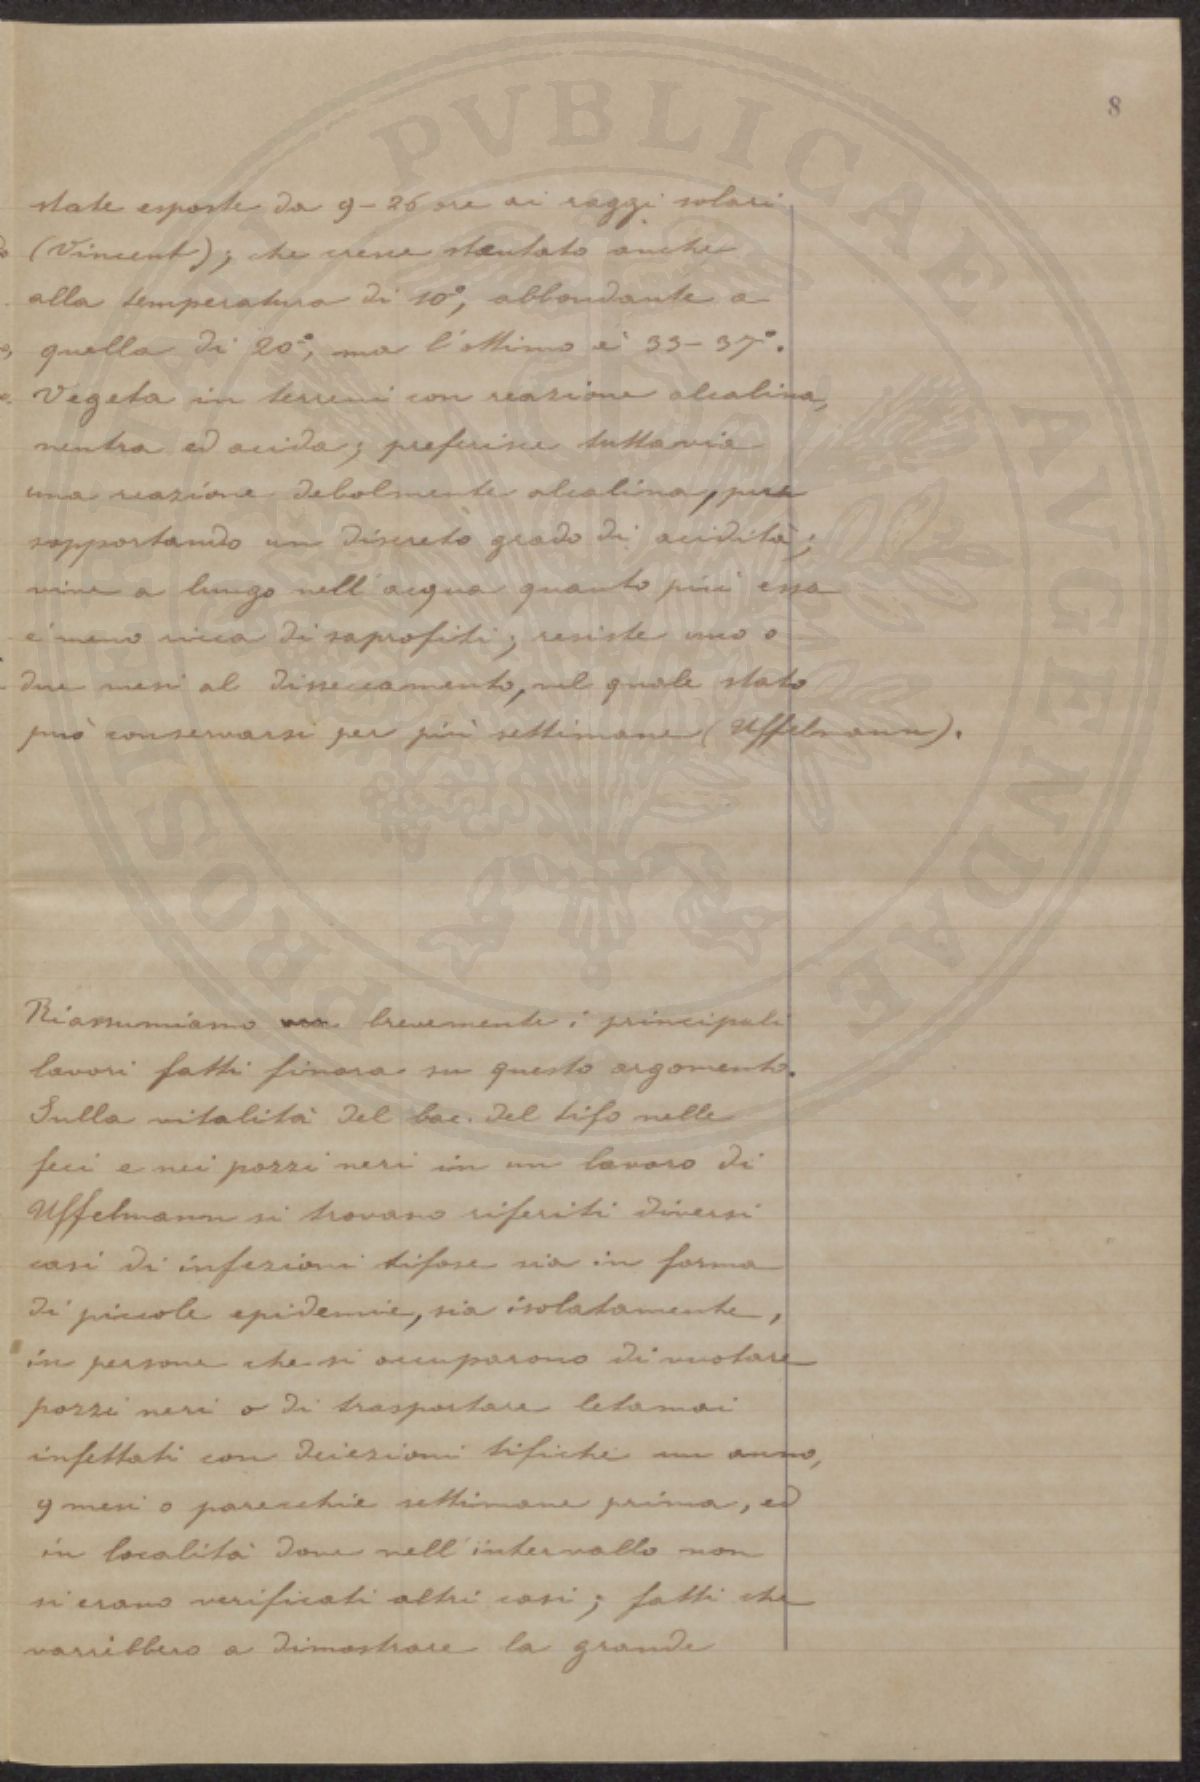 8
state esposte da 9-26 ore ai raggi solari
(Vincent); che cresce stentato anche
alla temperatura di 10°, abbondante a
quella di 20°, ma l'ottimo è 33-37°.
Vegeta in terreni con reazione alcalina,
neutra ed acida; preferisce tuttavia
una reazione debolmente alcalina, pur
sopportando un discreto grado di acidità;
vive a lungo nell'acqua quanto più essa
è meno ricca di saprofiti; resiste uno o
due mesi al disseccamento, nel quale stato
può conservarsi per più settimane (Uffelmann).
Riassumiamo brevemente i principali
lavori fatti finora su questo argomento.
Sulla vitalità del bac. del tifo nelle
feci e nei pozzi neri in un lavoro di
Uffelmann si trovano riferiti diversi
casi di infezioni tifose sia in forma
di piccole epidemie, sia isolatamente,
in persone che si occuparono di vuotare
pozzi neri o di trasportare letamai
infettati con deiezioni tifiche un anno,
9 mesi o parecchie settimane prima, ed
in località dove nell'intervallo non
si erano verificati altri casi; fatti che
varrebbero a dimostrare la grande
PROSPERITATI PVBLICAE AVGENDAE